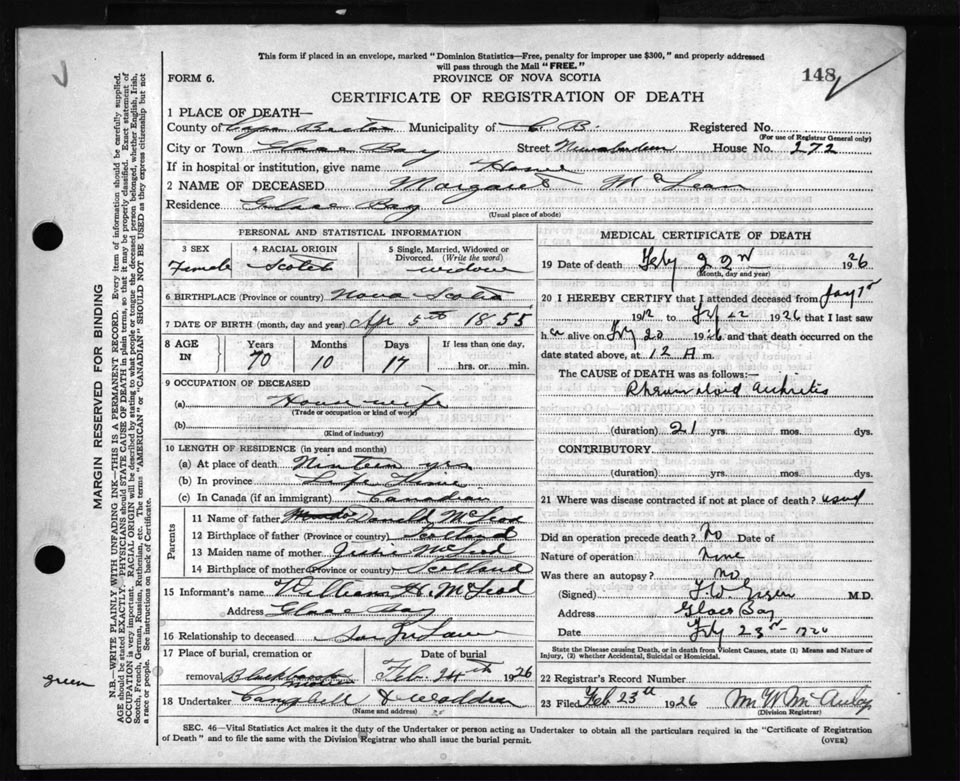 This form if placed in an envelope, marked "Dominion Statistics—Free, penalty for improper use $300," and properly addressed
will pass through the Mail "FREE."
FORM 6.
PROVINCE OF NOVA SCOTIA
148
CERTIFICATE OF REGISTRATION OF DEATH
1 PLACE OF DEATH—
County of Cape Breton Municipality of C. B. Registered No.
(For use of Registrar General only)
City or Town Glace Bay Street House No. 272
If in hospital or institution, give name Home
2 NAME OF DECEASED Margaret McLean
Residence Glace Bay
(Usual place of abode)
PERSONAL AND STATISTICAL INFORMATION
3 SEX 4 RACIAL ORIGIN 5 Single, Married, Widowed or Divorced. (Write the word)
Female Scotch widow
6 BIRTHPLACE (Province or country) Nova Scotia
7 DATE OF BIRTH (month, day and year) Apr 5th 1855
8 AGE IN Years Months Days If less than one day,
70 10 17 hrs. or min.
9 OCCUPATION OF DECEASED
(a) House wife
(Trade or occupation or kind of work)
(b)
(Kind of industry)
10 LENGTH OF RESIDENCE (in years and months)
(a) At place of death Ninteen yrs
(b) In province Life time
(c) In Canada (if an immigrant) Canadian
Parents
11 Name of father Donald McLeod
12 Birthplace of father (Province or country) Scotland
13 Maiden name of mother McLeod
14 Birthplace of mother (Province or country) Scotland
15 Informant's name William H. McLeod
Address Glace Bay
16 Relationship to deceased Son In Law
17 Place of burial, cremation or removal Date of burial
Feb. 24th 1926
18 Undertaker Campbell & Madden
(Name and address)
MEDICAL CERTIFICATE OF DEATH
19 Date of death Feby 22nd 1926
(Month, day and year)
20 I HEREBY CERTIFY that I attended deceased from
1912 to 22 1926 that I last saw
her alive on 20 1926 and that death occurred on the
date stated above, at 12 A m.
The CAUSE OF DEATH was as follows:—
Rheumatoid Arthritis
(duration) 21 yrs. mos. dys.
CONTRIBUTORY.
(duration) yrs. mos. dys.
21 Where was disease contracted if not at place of death? usual
Did an operation precede death? No Date of
Nature of operation none
Was there an autopsy? no
(Signed) M.D.
Address Glace Bay
Date Feby 23rd
State the Disease causing Death, or in death from Violent Causes, state (1) Means and Nature of
Injury, (2) whether Accidental, Suicidal or Homicidal.
22 Registrar's Record Number
23 Filed Feb 23rd 1926
(Division Registrar)
SEC. 46—Vital Statistics Act makes it the duty of the Undertaker or person acting as Undertaker to obtain all the particulars required in the "Certificate of Registration
of Death" and to file the same with the Division Registrar who shall issue the burial permit.
(OVER)
MARGIN RESERVED FOR BINDING
N.B.—WRITE PLAINLY WITH UNFADING INK—THIS IS A PERMANENT RECORD. Every item of information should be carefully supplied.
AGE should be stated EXACTLY. PHYSICIANS should STATE CAUSE OF DEATH in plain terms, so that it may be properly classified. Exact statement of
OCCUPATION is very important. RACIAL ORIGIN will be described by stating to what people or tongue the deceased person belonged, whether English, Irish,
Scotch, French, German, Russian, Ruthenian, etc. The terms "AMERICAN" or "CANADIAN" SHOULD NOT BE USED as they express citizenship but not
a race or people. See instructions on back of Certificate.
green